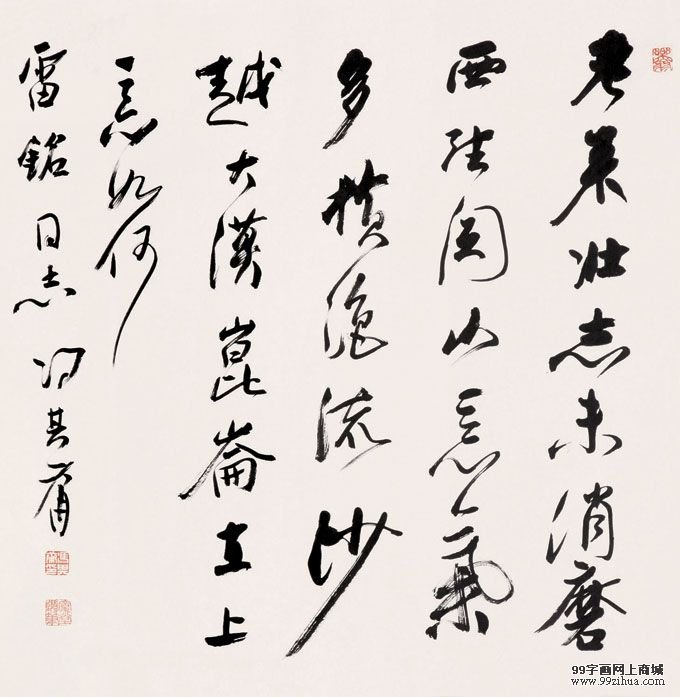 老来壮志未消磨
西望关山意氣
多横绝流沙
越大漠崑崙直上
意如何
雷銘同志 冯其庸
99字画网上商城
www.99zihua.com